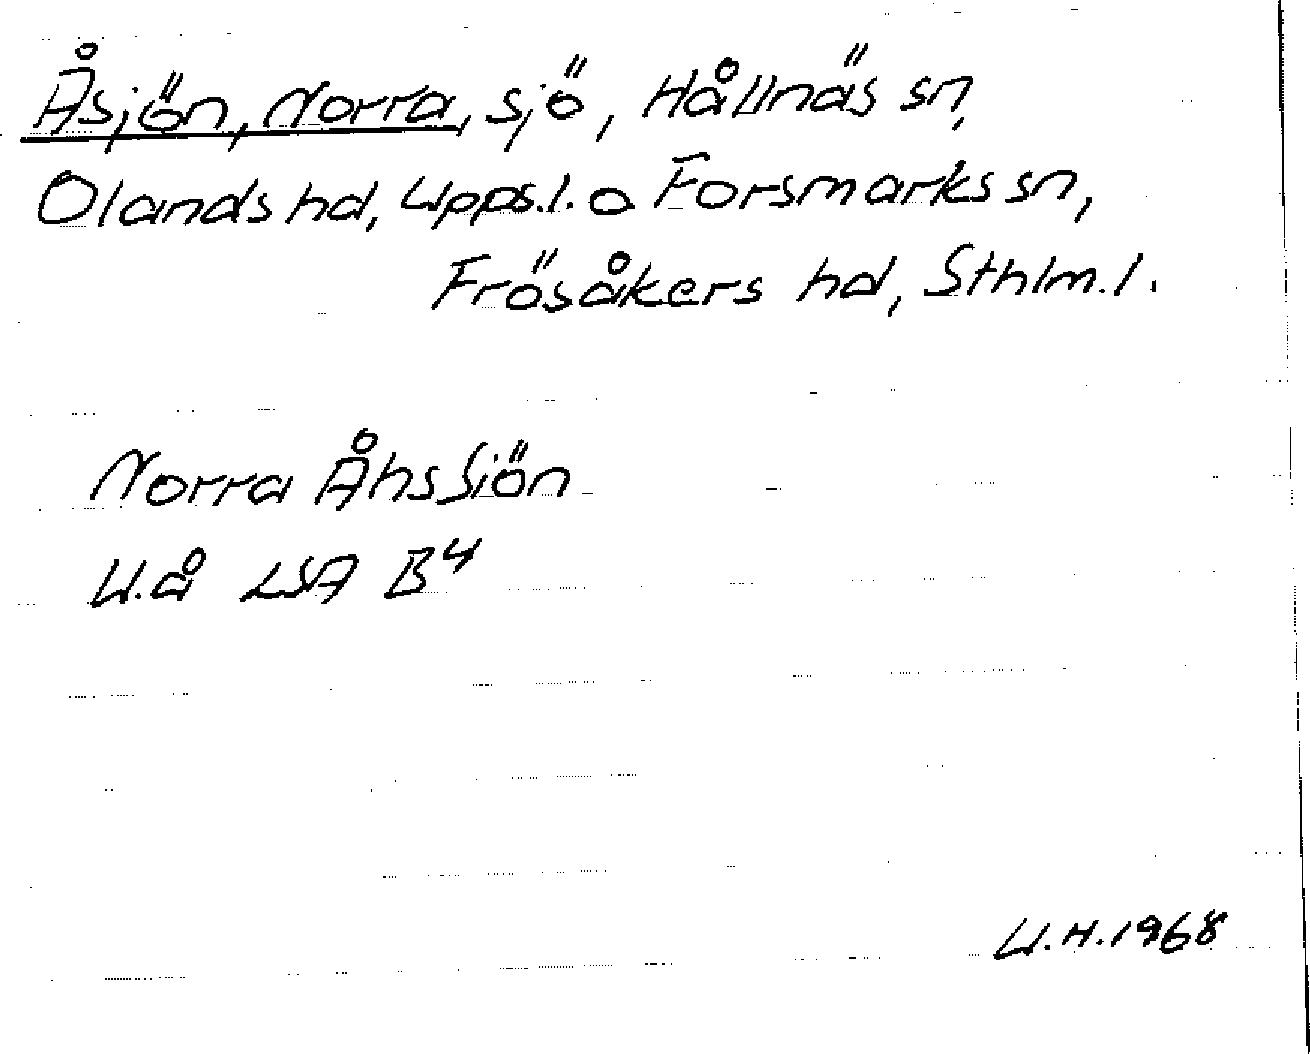 Åsjön, Norra, sjö, Hållnäs sn,
Olands hd, Upps.l. o Forsmarks sn,
Frösåkers hd, Sthlm.l.
Norra ÅhsSiön
U.å LSA B4
U.H.1968